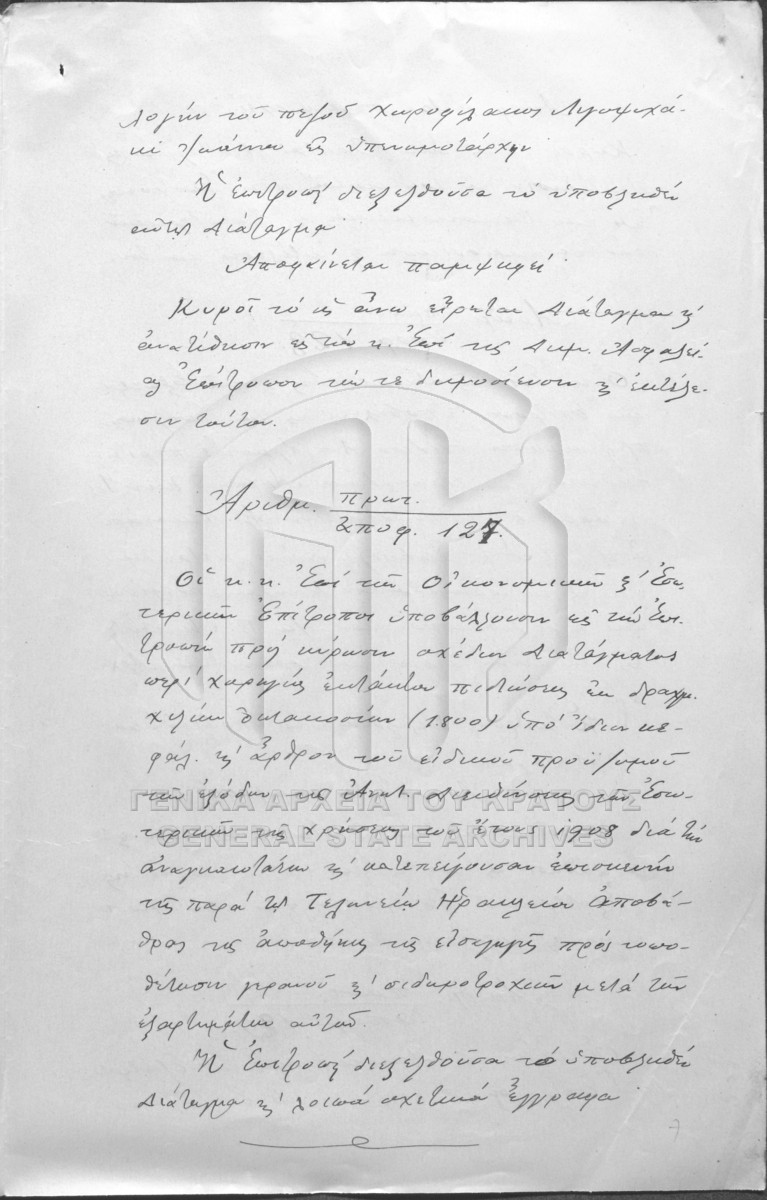 λογὴν τοῦ πεζοῦ χωροφύλακος Λιγοψυχά-
κι Ἰωάννου εἰς ὑπενωμοτάρχην
Ἡ Ἐπιτροπὴ διεξελθοῦσα τὸ ὑποβληθὲν
αὐτῇ Διάταγμα
Ἀποφαίνεται παμψηφεὶ
Κυροῖ τὸ ὡς ἄνω εἴρηται Διάταγμα κ'
ἀνατίθησιν εἰς τὸν κ. Ἐπὶ τῆς Δημ. Ἀσφαλεί-
ας Ἐπίτροπον τήν τε δημοσίευσιν κ' ἐκτέλε-
σιν τούτου.
Ἀριθμ. πρωτ.
ἀποφ. 127.
Οἱ κ.κ. Ἐπὶ τῶν Οἰκονομικῶν κ' Ἐσω-
τερικῶν Ἐπίτροποι ὑποβάλλουσιν εἰς τὴν Ἐπι-
τροπὴν πρὸς κύρωσιν σχέδιον Διατάγματος
περὶ χορηγίας ἐκτάκτου πιστώσεως ἐκ δραχμ.
χιλίων ὀκτακοσίων (1.800) ὑπὸ ἴδιον κε-
φάλ. κ' ἄρθρον τοῦ εἰδικοῦ προϋ/σμοῦ
τῶν ἐξόδων τῆς Ἀνωτ. Διευθύνσεως τῶν Ἐσω-
τερικῶν τῆς χρήσεως τοῦ ἔτους 1908 διὰ τὴν
ἀναγκαιοτάτην κ' κατεπείγουσαν ἐπισκευὴν
τῆς παρὰ τῷ Τελωνείῳ Ἡρακλείου ἀποβά-
θρας τῆς ἀποθήκης τῆς εἰσαγωγῆς πρὸς τοπο-
θέτησιν γερανοῦ κ' σιδηροτροχιῶν μετὰ τῶν
ἐξαρτημάτων αὐτοῦ.
Ἡ Ἐπιτροπὴ διεξελθοῦσα τὸ ὑποβληθὲν
Διάταγμα κ' λοιπὰ σχετικὰ ἔγγραφα
7
ΓΕΝΙΚΑ ΑΡΧΕΙΑ ΤΟΥ ΚΡΑΤΟΥΣ
GENERAL STATE ARCHIVES